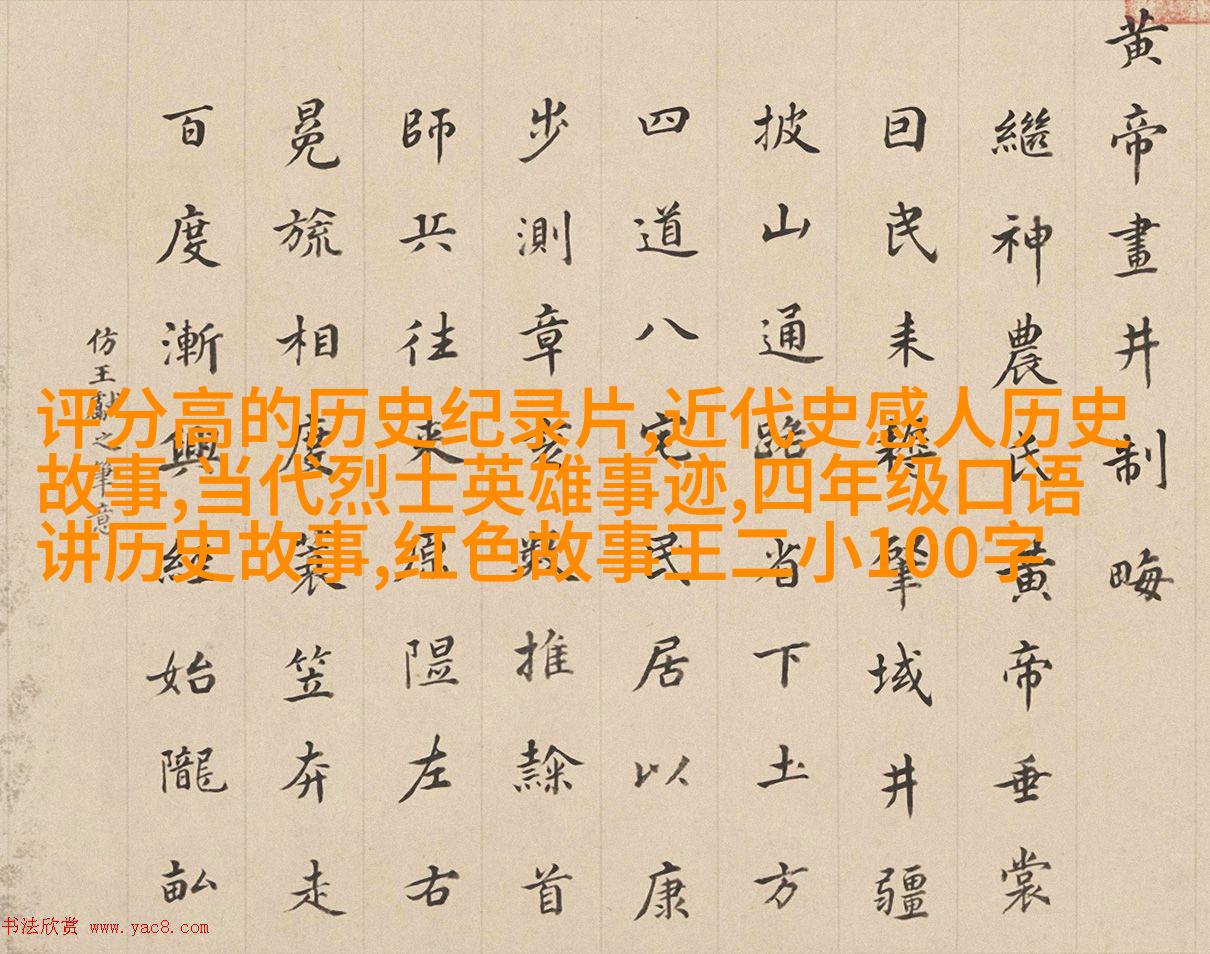 黄帝畫井制畮
繼神農氏黄帝垂裳
囙民耒耨肇域井疆
披山通路省下土方
四道八宅民居以康
步測章亥數推隷首
師兵往来原隰左右
冕旒相度蓑笠奔走
百度漸興經始隴畝
仿王獻之筆意
评分高的历史纪录片,近代史感人历史
故事,当代烈士英雄事迹,四年级口语
讲历史故事,红色故事王二小100字
书法欣赏 www.yac8.com